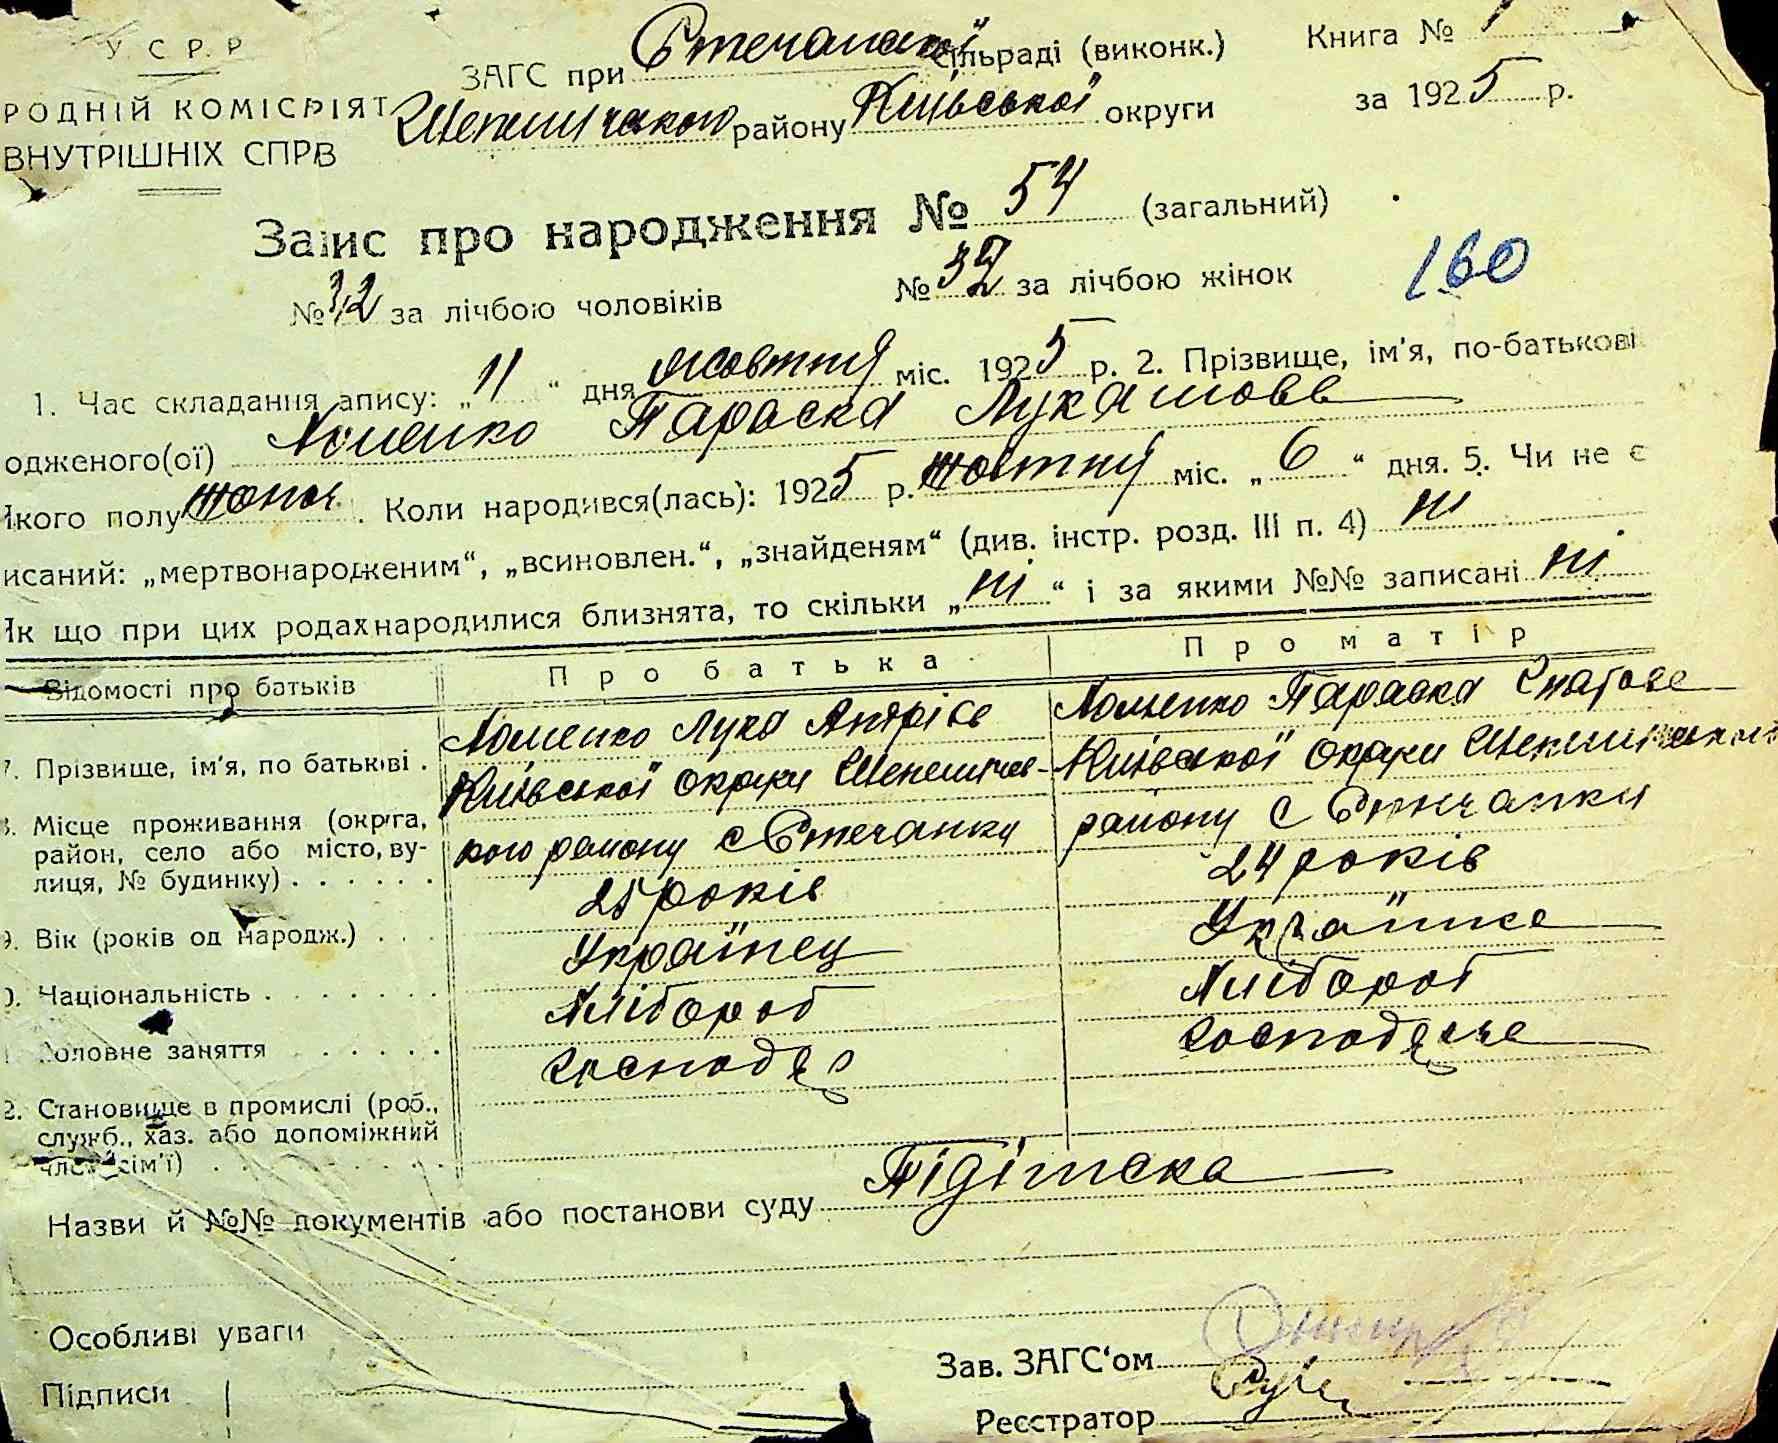 У. С. Р. Р
ЗАГС при Стечанській сільраді (виконк.) Книга № 1
РОДНІЙ КОМІСРІЯТ
Шепелицького району Київської округи за 1925 р.
ВНУТРІШНІХ СПРВ
Запис про народження № 54 (загальний)
№ 32 за лічбою чоловіків № 32 за лічбою жінок 160
1. Час складання апису: „11“ дня жовтня міс. 1925 р. 2. Прізвище, ім'я, по-батькові
одженого(ої) Хоменко Параска Лукашова
Якого полу жоноч. Коли народився(лась): 1925 р. жовтня міс. „6“ дня. 5. Чи не є
исаний: „мертвонародженим“, „всиновлен.“, „знайденям“ (див. інстр. розд. III п. 4) ні
Як що при цих родах народилися близнята, то скільки „ні“ і за якими №№ записані ні
Відомості про батьків Про батька Про матір
7. Прізвище, ім'я, по батькові . Хоменко Лука Андріів Хоменко Параска
8. Місце проживання (округа, Київської округи Шепелиць- Київської округи
район, село або місто, ву- кого району с Стечанки району с Стечанки
лиця, № будинку) . . . . . .
9. Вік (років од народж.) . . . 25 років 24 років
0. Національність . . . . . . . Українец Українка
Головне заняття . . . . . . Хлібороб Хлібороб
2. Становище в промислі (роб., господар господарка
служб., хаз. або допоміжний
член сім'ї) . . . . . . . . .
Назви й №№ документів або постанови суду
Особливі уваги
Зав. ЗАГС'ом
Підписи
Реєстратор